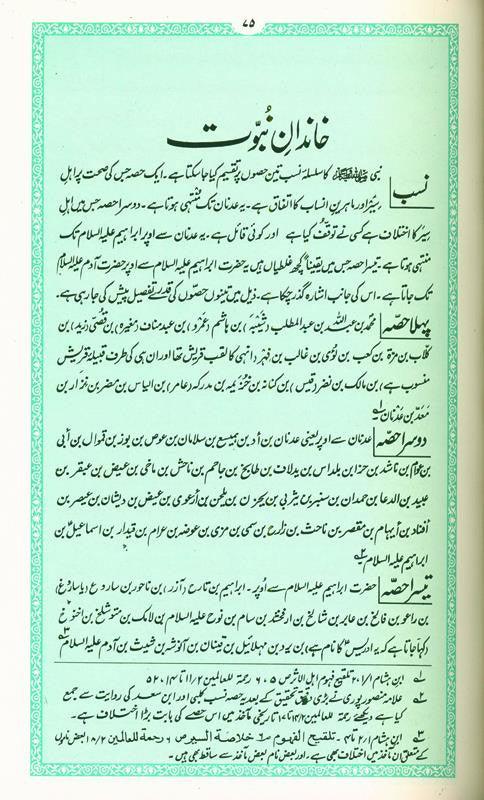 ۷۵
خاندانِ نبوّت
نسب
نبی ﷺ کا سلسلۂ نسب تین حصوں پر تقسیم کیا جا سکتا ہے۔ ایک حصہ جس کی صحت پر اہلِ
سِیَر اور ماہرینِ انساب کا اتفاق ہے۔ یہ عدنان تک منتہی ہوتا ہے۔ دوسرا حصہ جس میں اہلِ
سِیَر کا اختلاف ہے کسی نے توقف کیا ہے اور کوئی قائل ہے۔ یہ عدنان سے اوپر ابراہیم علیہ السلام تک
منتہی ہوتا ہے۔ تیسرا حصہ جس میں یقیناً کچھ غلطیاں ہیں یہ حضرت ابراہیم علیہ السلام سے اوپر حضرت آدم علیہ السلام
تک جاتا ہے۔ اس کی جانب اشارہ گذر چکا ہے۔ ذیل میں تینوں حصوں کی قدرے تفصیل پیش کی جا رہی ہے۔
پہلا حصّہ محمد بن عبداللہ بن عبدالمطلب (شَیْبَہ) بن ہاشم (عَمْرو) بن عبد مناف (مغیرہ) بن قُصَیّ (زید) بن
کلاب بن مرّہ بن کعب بن لُؤی بن غالب بن فہر (انہی کا لقب قریش تھا اور ان ہی کی طرف قبیلۂ قریش
منسوب ہے) بن مالک بن نضر (قیس) بن کنانہ بن خُزَیمہ بن مدرکہ (عامر) بن الیاس بن مضر بن نِزار بن
مَعَدّ بن عدنان ؎۱
دوسرا حصّہ عدنان سے اوپر یعنی عدنان بن أد بن ہمیسع بن سلامان بن عوص بن یوز بن قموال بن أبی
بن عوام بن ناشد بن حزا بن بلداس بن یدلاف بن طابخ بن جاحم بن ناحش بن ماخی بن عیض بن عبقر بن
عبید بن الدعا بن حمدان بن سنبر بن یثربی بن یحزن بن یلحن بن أرعوی بن عیض بن دیشان بن عیصر بن
أفناد بن أیہام بن مقصر بن ناحث بن زارح بن سمی بن مزی بن عوضہ بن عرام بن قیدار بن اسماعیل بن
ابراہیم علیہ السلام ؎۲
تیسرا حصّہ حضرت ابراہیم علیہ السلام سے اوپر۔ ابراہیم بن تارح (آزر) بن ناحور بن ساروع (یا ساروغ)
بن راعو بن فالخ بن عابر بن شالخ بن ارفخشد بن سام بن نوح علیہ السلام بن لامک بن متوشلخ بن اخنوخ
(کہا جاتا ہے کہ یہ ادریسؑ کا نام ہے) بن یرد بن مہلائیل بن قینان بن آنوشہ بن شیث بن آدم علیہ السلام ؎۳
؎۱ ابن ہشام ۱/۱، ۲ تلقیح فہوم اہل الاثر ص ۵، ۶ رحمۃ للعالمین ۲/ ۱۱ تا ۱۴، ۵۲
؎۲ علامہ منصور پوری نے بڑی دقیق تحقیق کے بعد یہ حصہ نسب کلبی اور ابن سعد کی روایت سے جمع
کیا ہے دیکھئے رحمۃ للعالمین ۲/ ۱۴ تا ۱۷ تاریخی مآخذ میں اس حصے کی بابت بڑا اختلاف ہے۔
؎۳ ابن ہشام ۱/ ۲ تا ۴۔ تلقیح الفہوم ص ۶ خلاصۃ السیر ص ۶ رحمۃ للعالمین ۲/ ۱۸ بعض ناموں
کے متعلق ان مآخذ میں اختلاف بھی ہے، اور بعض نام بعض مآخذ سے ساقط بھی ہیں۔